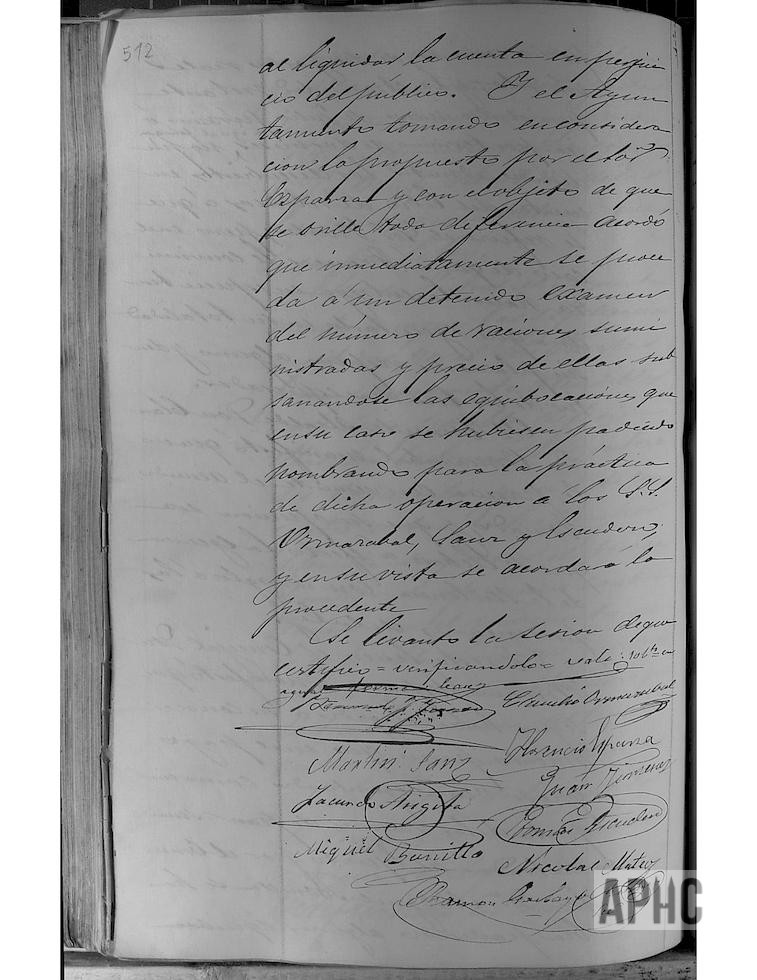 512
al liquidar la cuenta en perjui
cio del público. Y el Ayun
tamiento tomando en considera
cion lo propuesto por el Sor
Esparza y con el objeto de que
se orille toda diferencia acordó
que inmediatamente se proce
da á un detenido examen
del número de raciones sumi
nistradas y precio de ellas sub
sanandose las equibocaciones que
en su caso se hubiesen padecido
nombrando para la práctica
de dicha operacion a los S.S.
Ormazabal, Sanz y Escudero,
y en su vista se acordará lo
procedente
Se levanto la sesion de que
certifico = verificandolo =
Ormazabal
Martin Sanz
Florencio Esparza
Juan Jimenez
Facundo Angita
Tomás Escudero
Miguel Bonilla
Nicolas Mateo
Ramon
APHC